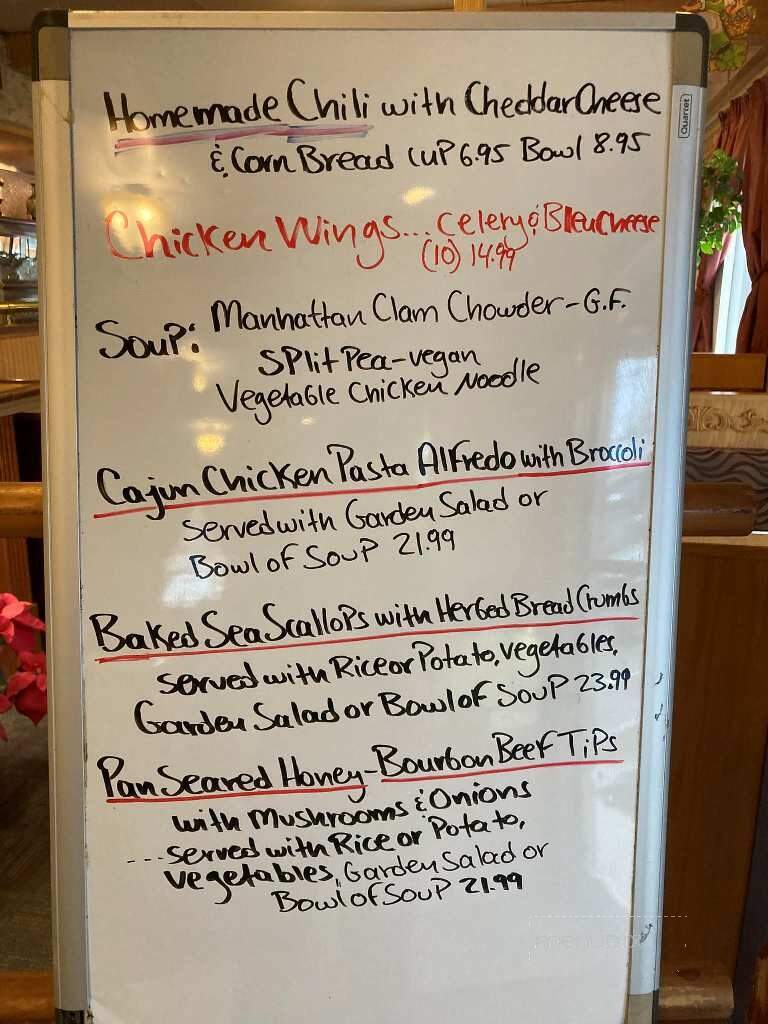 Homemade Chili with Cheddar Cheese
& Corn Bread Cup 6.95 Bowl 8.95
Chicken Wings... Celery & Bleu Cheese
(10) 14.99
Soup: Manhattan Clam Chowder - G.F.
Split Pea - vegan
Vegetable Chicken Noodle
Cajun Chicken Pasta Alfredo with Broccoli
served with Garden Salad or
Bowl of Soup 21.99
Baked Sea Scallops with Herbed Bread Crumbs
served with Rice or Potato, vegetables,
Garden Salad or Bowl of Soup 23.99
Pan Seared Honey-Bourbon Beef Tips
with Mushrooms & Onions
---served with Rice or Potato,
vegetables, Garden Salad or
Bowl of Soup 21.99
Quartet